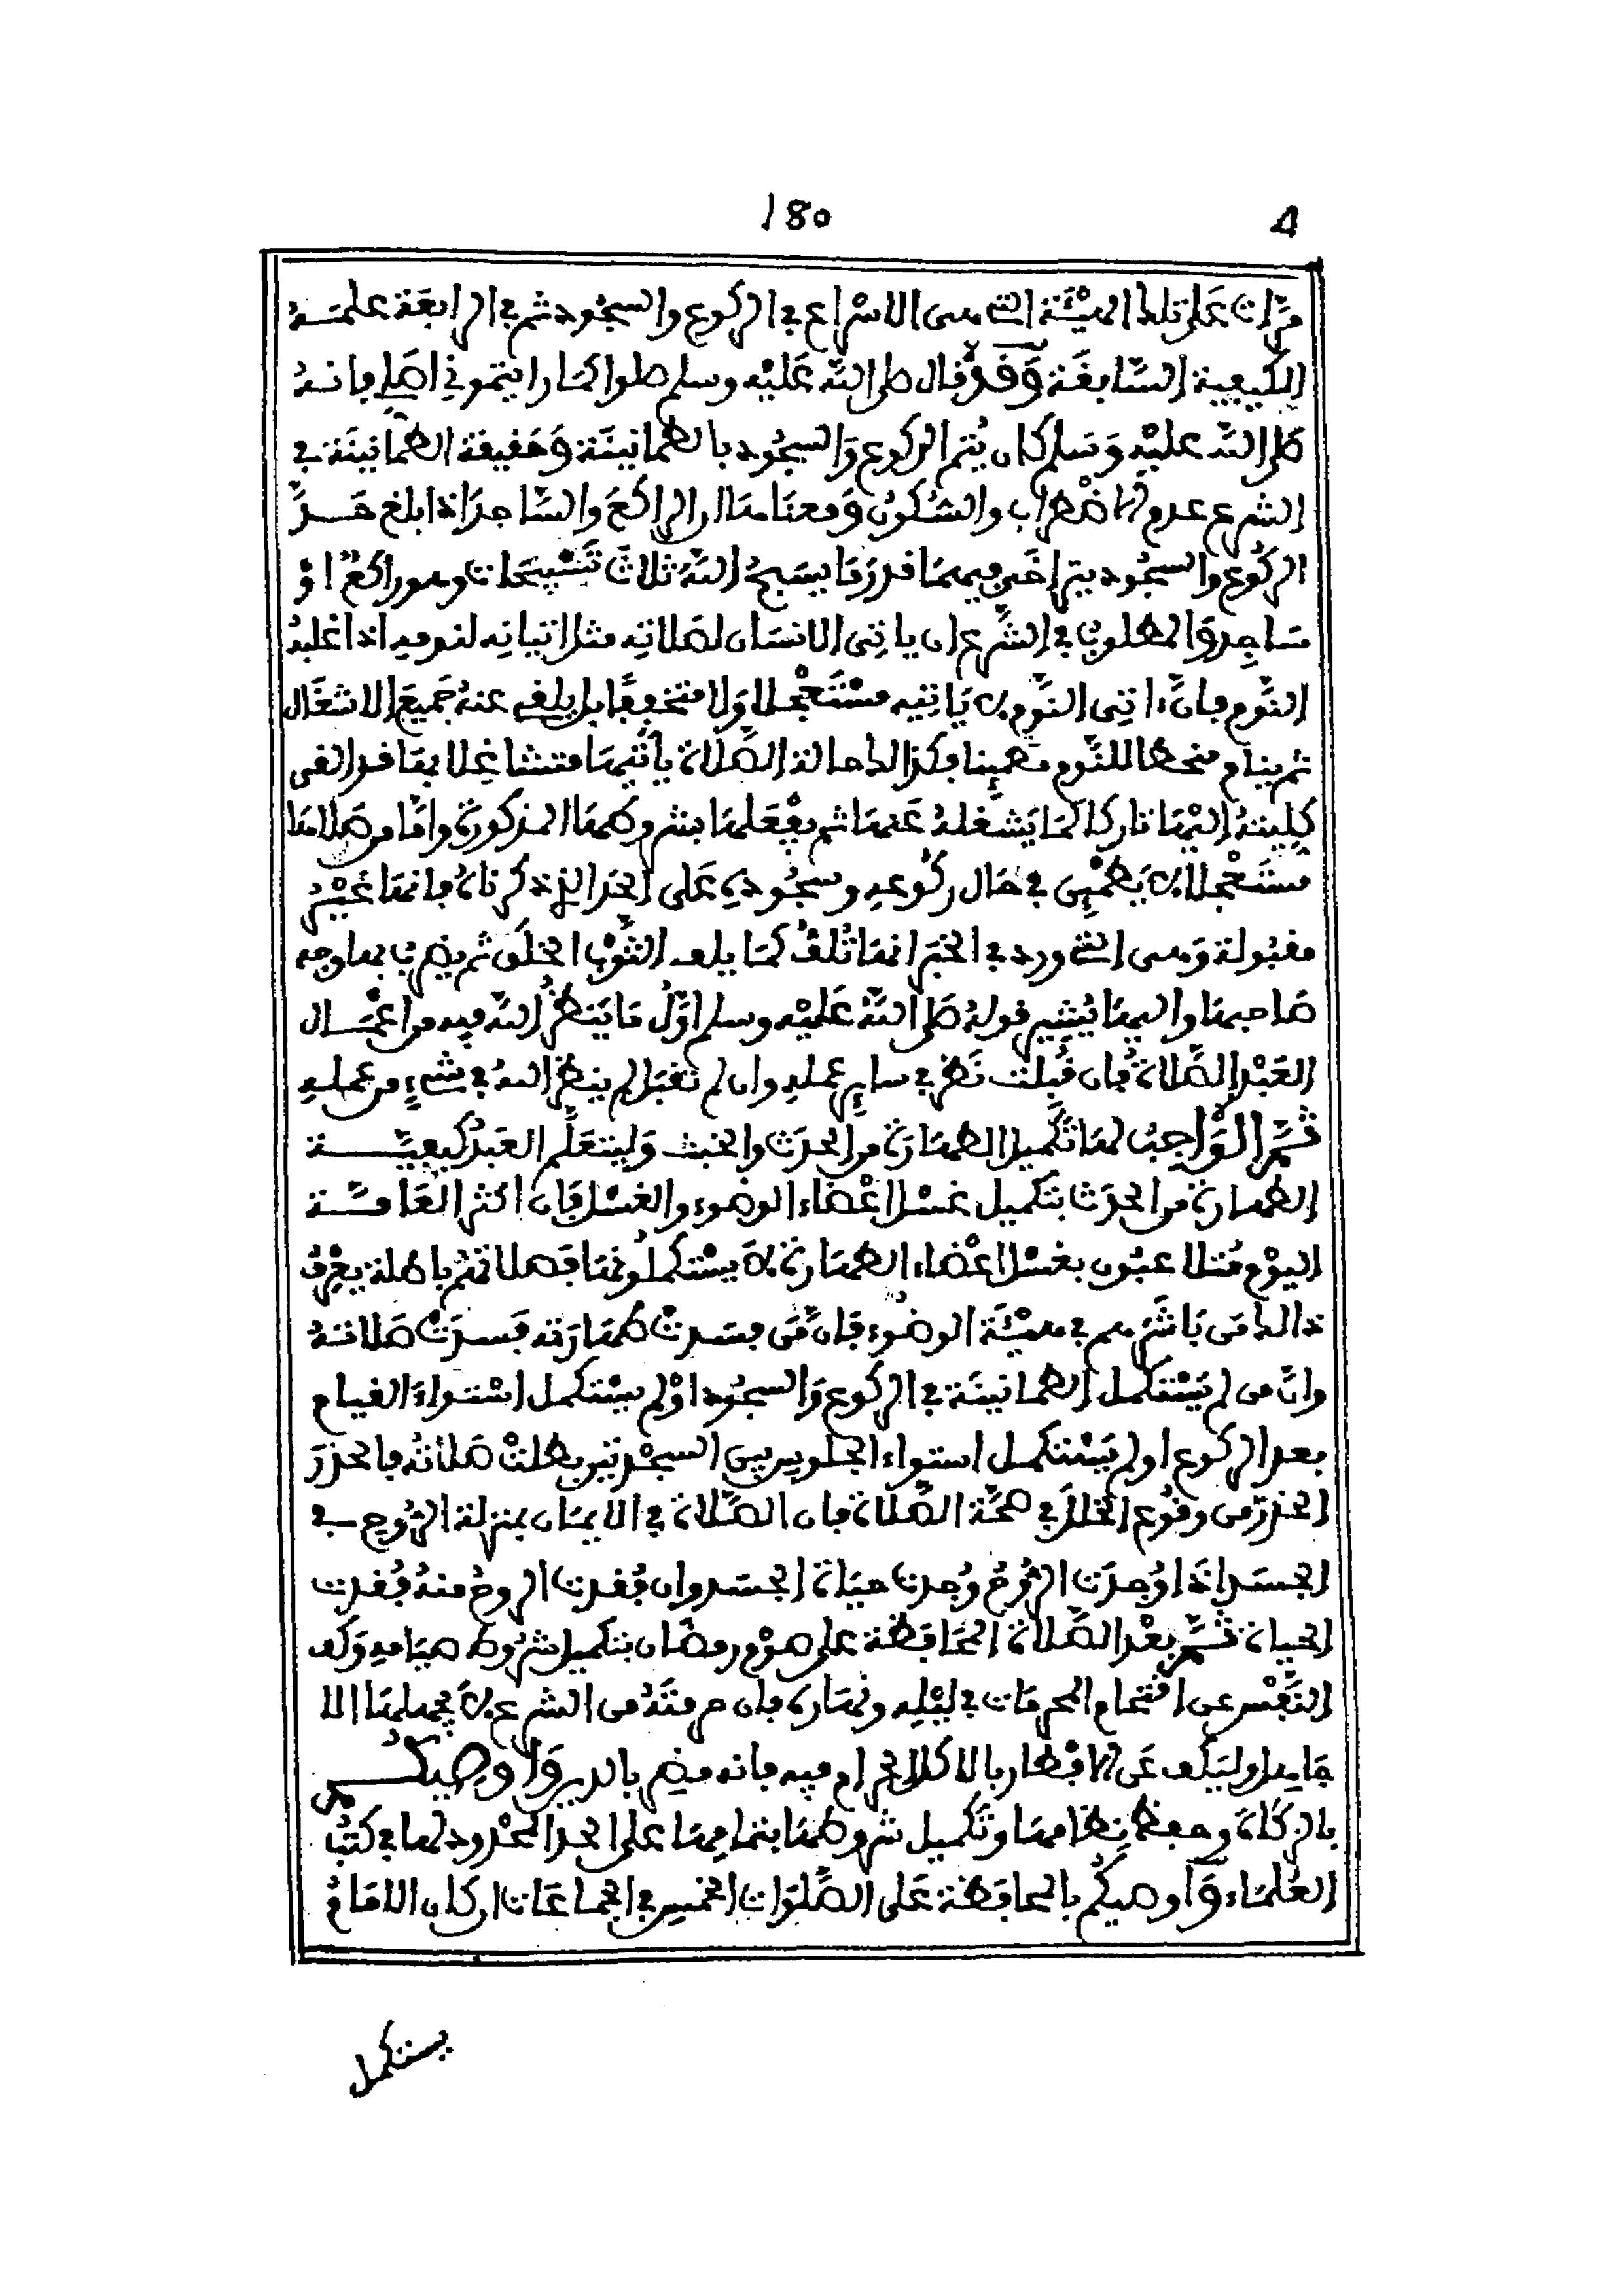 180 4
مرات على تلك الهيئة التي هي الاسراع في الركوع والسجود ثم في الرابعة علمه
الكيفية السابقة وقد قال صلى الله عليه وسلم صلوا كما رايتموني اصلي فانه
صلى الله عليه وسلم كان يتم الركوع والسجود بالطمانينة وحقيقة الطمانينة في
الشرع عدم الاضطراب والسكون ومعناها ان الراكع والساجد اذا بلغ حد
الركوع والسجود يتراخى فيهما قدر ما يسبح الله ثلاث تسبيحات وهو راكع او
ساجد والمطلوب في الشرع ان ياتي الانسان لصلاته مثل اتيانه لنومه اذا غلبه
النوم فان اتى النوم لا ياتيه مستعجلا ولا متخففا بل يلغي عنه جميع الاشغال
ثم ينام منحطا للنوم مطمينا فكذالك حالة الصلاة ياتيها متشاغلا بها قد القى
كليته اليها تاركا لما يشغله عنها ثم يفعلها بشروطها المذكورة واما من صلاها
مستعجلا لا يطمئن في حال ركوعه وسجوده على الحد الذي ذكرناه فانها غير
مقبولة وهي التي ورد في الخبر انها تلف كما يلف الثوب الخلق ثم يضرب بها وجه
صاحبها واليها يشير قوله صلى الله عليه وسلم اول ما ينظر الله فيه من اعمال
العبد الصلاة فان قبلت نظر في ساير عمله وان لم تقبل لم ينظر الله في شيء من عمله
ثم الواجب لها تكميل الطهارة من الحدث والخبث وليتعلم العبد كيفية
الطهارة من الحدث بتكميل غسل اعضاء الوضوء والغسل فان اكثر العامة
اليوم متلاعبون بغسل اعضاء الطهارة لا يستكملونها فصلاتهم باطلة يعرف
ذالك من باشرهم في هيئة الوضوء فان من فسدت طهارته فسدت صلاته
وان من لم يستكمل الطمانينة في الركوع والسجود او لم يستكمل استواء القيام
بعد الركوع او لم يستكمل استواء الجلوس بين السجدتين بطلت صلاته فالحذر
الحذر من وقوع الخلل في صحة الصلاة فان الصلاة في الايمان بمنزلة الروح في
الجسد اذا وجدت الروح وجدت حياة الجسد وان فقدت الروح منه فقدت
الحياة ثم بعد الصلاة المحافظة على صوم رمضان بتكميل شروط صيامه وكف
النفس عن اقتحام المحرمات في ليله ونهاره فان حرمته من الشرع لا يجهلها الا
جاهل وليكف عن الافطار بالاكل الحرام فيه فانه مضر بالدين واوصيكم
بالزكاة وحفظ نظامها وتكميل شروطها بتمامها على الحد المحدود لها في كتب
العلماء واوصيكم بالمحافظة على الصلوات الخمس في الجماعات ان كان الامام
يستكمل